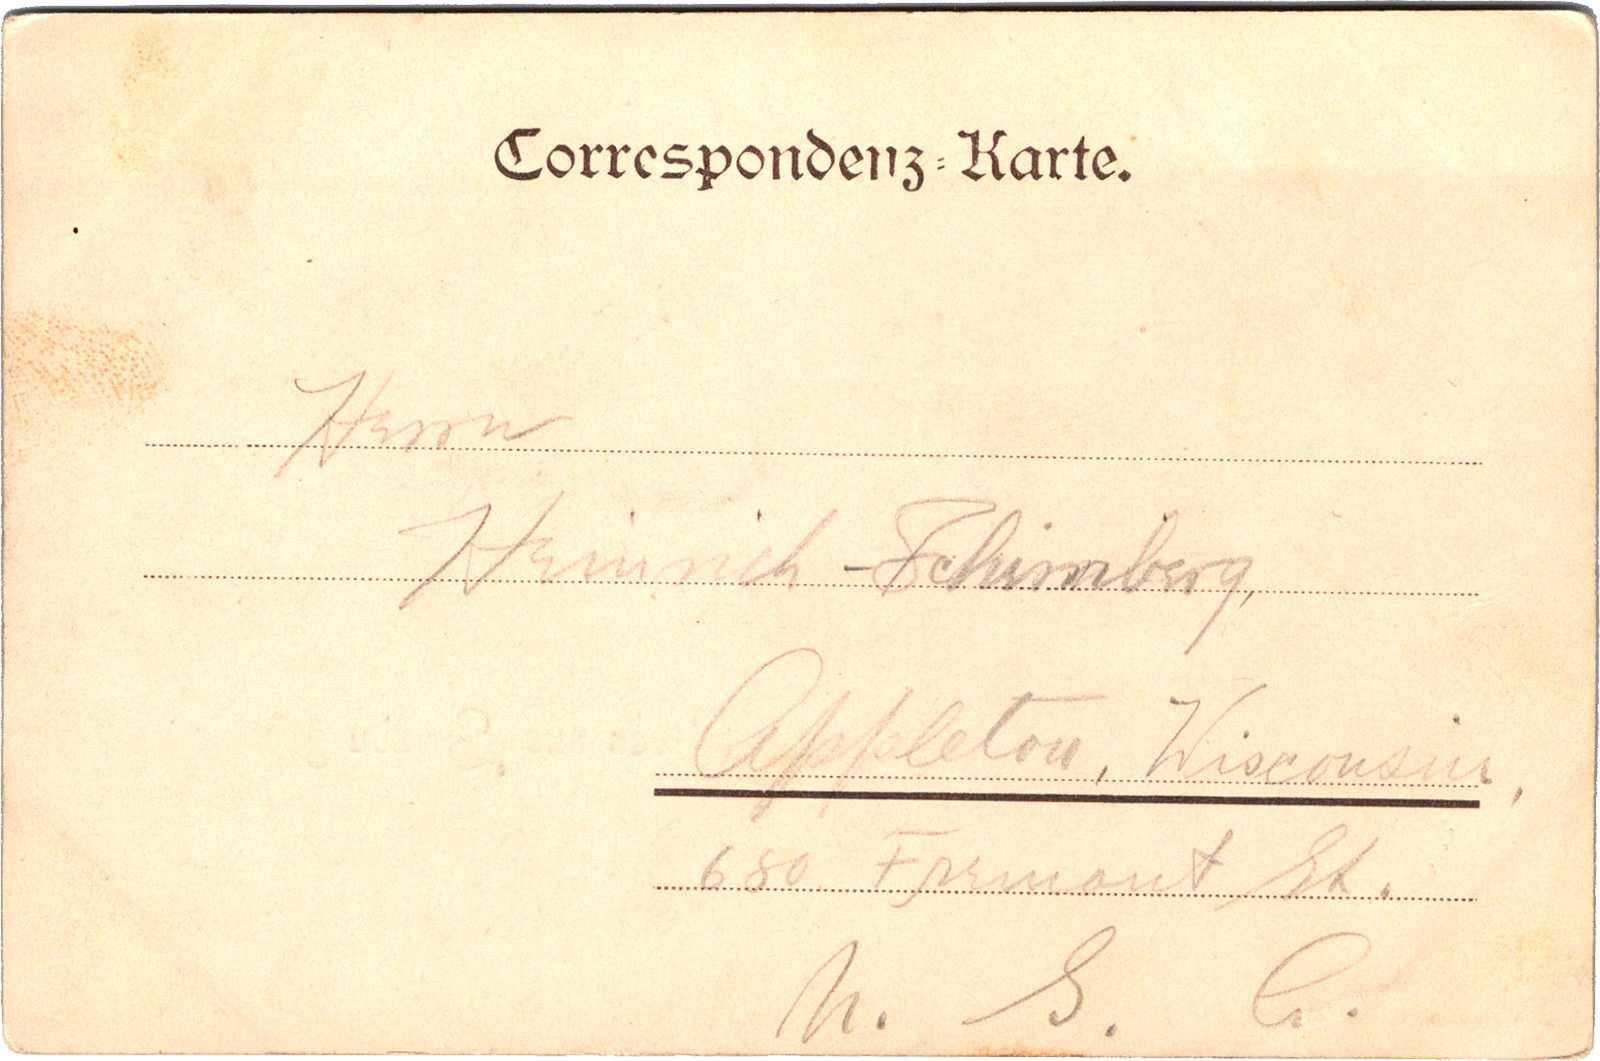 Correspondenz-Karte.
Herrn
Heinrich Schimberg,
Appleton, Wisconsin,
680 Fremont St.
U. S. A.